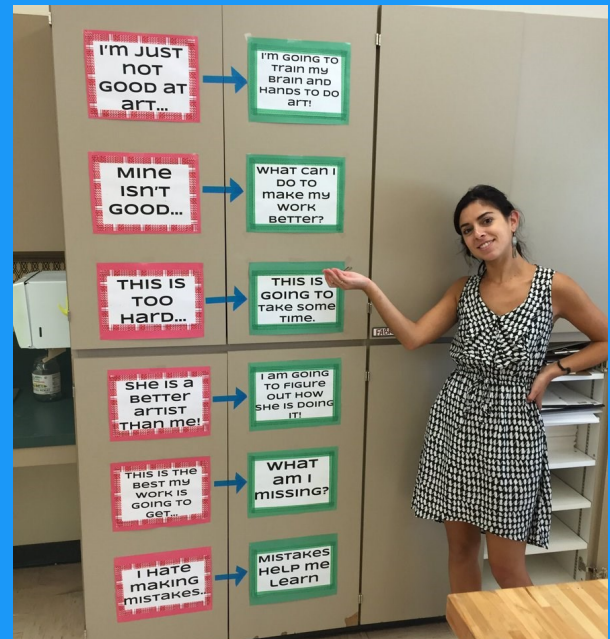 I'm JUST
NOT
GOOD AT
ART...
I'm GOING TO
TRAIN my
BRAIN AND
HANDS TO DO
ART!
MINE
ISN'T
GOOD...
WHAT CAN I
DO TO
make my
WORK
BETTER?
THIS IS
TOO
HARD...
THIS IS
GOING TO
TAKE SOME
TIME.
SHE IS A
BETTER
ARTIST
THAN ME!
I AM GOING
TO FIGURE
OUT HOW
SHE IS DOING
IT!
THIS IS THE
BEST my
WORK IS
GOING TO
GET...
WHAT
am I
MISSING?
I HATE
making
MISTAKES...
MISTAKES
HELP me
LEARN